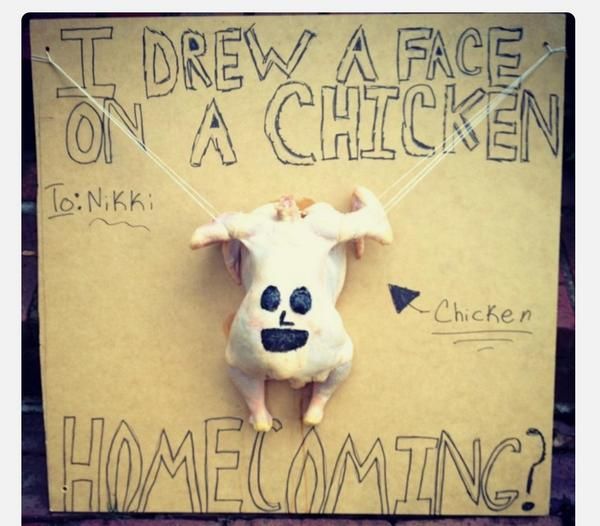 I DREW A FACE
ON A CHICKEN
To: Nikki
Chicken
HOMECOMING?